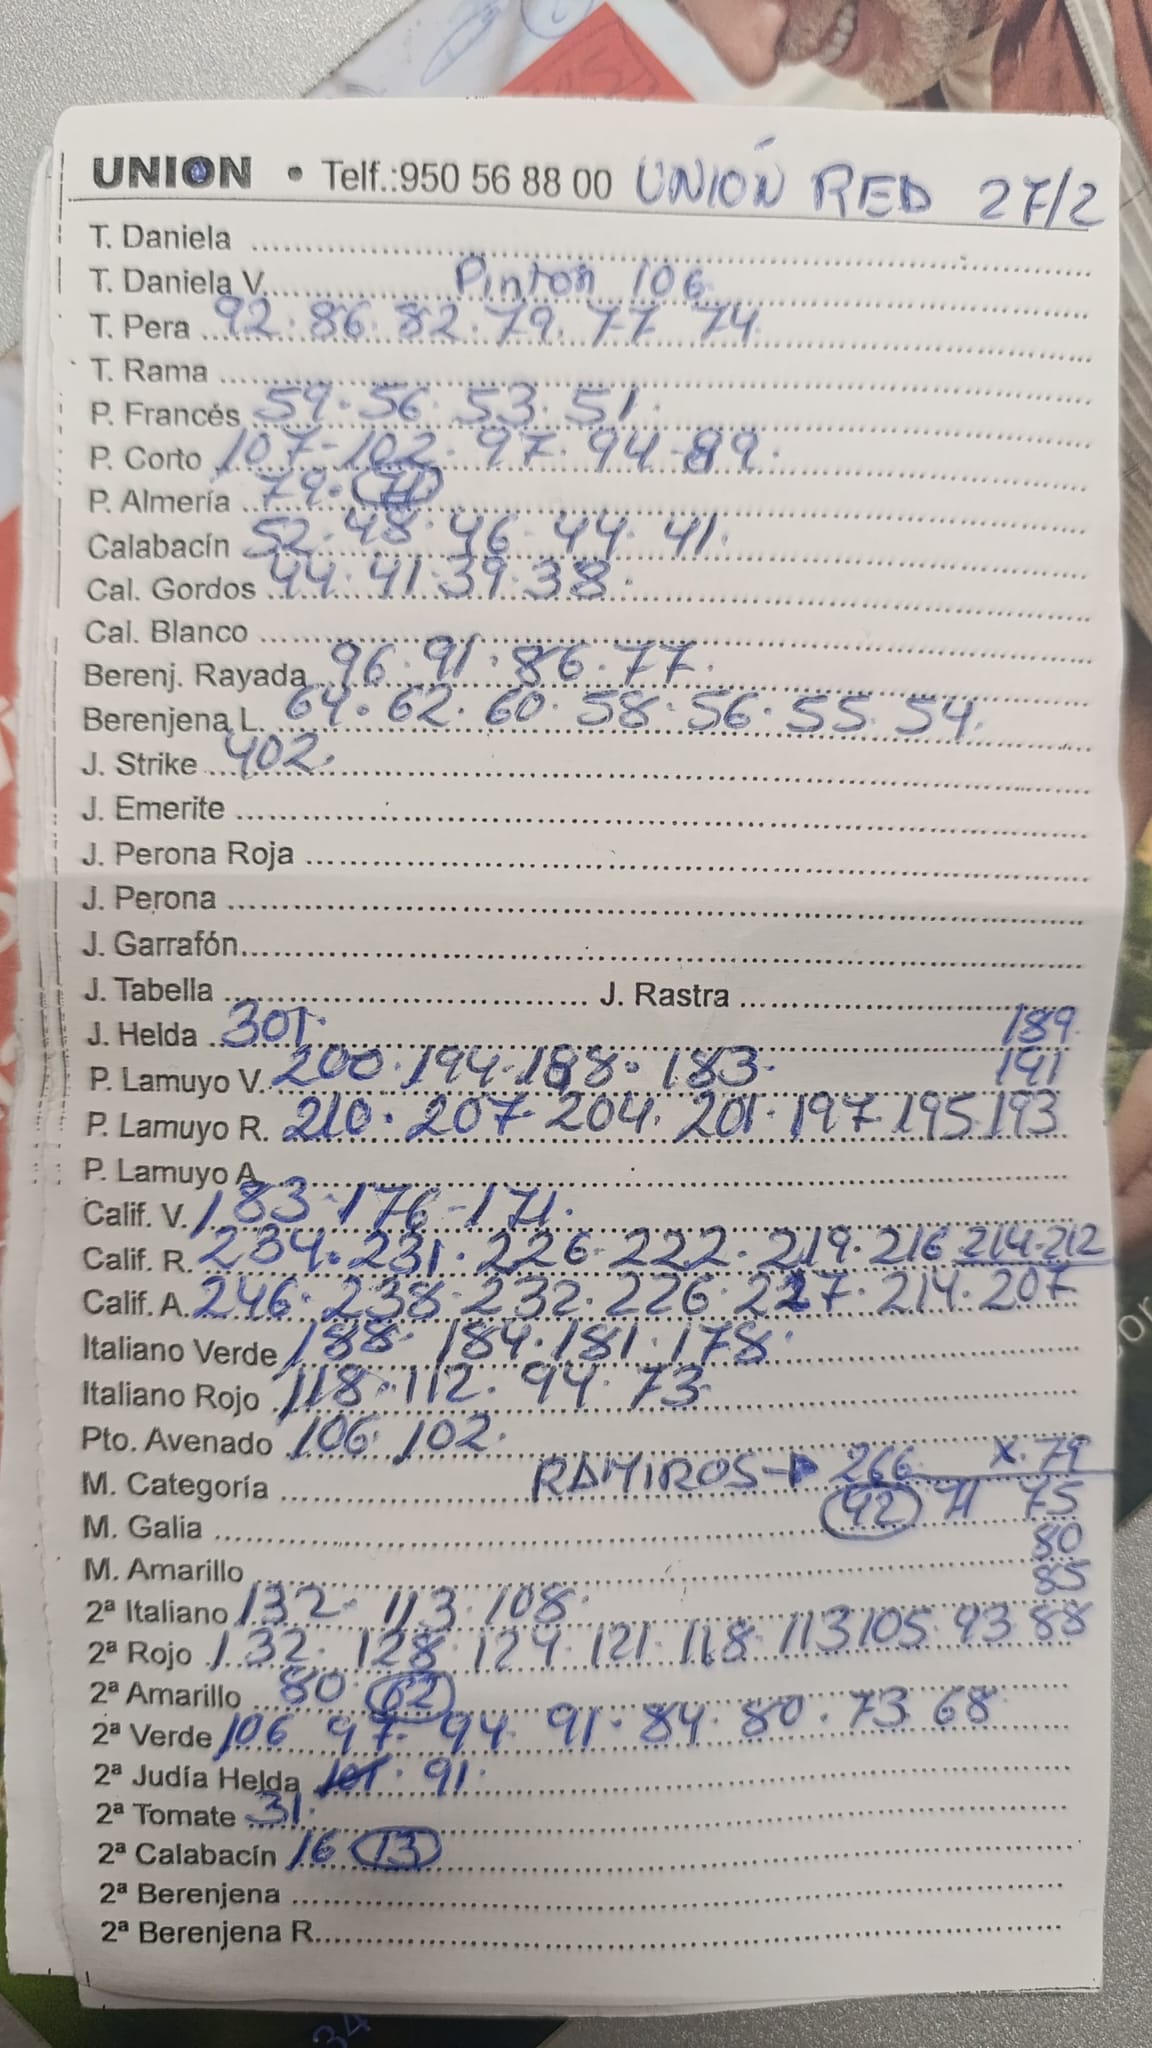 UNION • Telf.:950 56 88 00 UNIÓN RED 27/2
T. Daniela
T. Daniela V. Pinton 106
T. Pera 92. 86. 82. 79. 77 74.
T. Rama
P. Francés 59. 56. 53. 51.
P. Corto 107-102. 97. 94-89.
P. Almería 79. 71
Calabacín 52. 48. 46. 44. 41.
Cal. Gordos 44. 41. 39. 38.
Cal. Blanco
Berenj. Rayada 96. 91. 86. 77.
Berenjena L. 64. 62. 60. 58. 56. 55. 54.
J. Strike 402.
J. Emerite
J. Perona Roja
J. Perona
J. Garrafón
J. Tabella J. Rastra
J. Helda 301. 189
P. Lamuyo V. 200. 194. 188. 183. 191
P. Lamuyo R. 210. 207 204. 201. 197 195. 193
P. Lamuyo A.
Calif. V. 183. 176-171.
Calif. R. 234. 231. 226. 222. 219. 216 214-212
Calif. A. 246. 238. 232. 226. 217. 214. 207
Italiano Verde 188. 184. 181. 178.
Italiano Rojo 118. 112. 94. 73.
Pto. Avenado 106. 102.
M. Categoría RAMIROS→ 266 X. 79
M. Galia 92 71 75
80
M. Amarillo 85
2ª Italiano 132. 113. 108.
2ª Rojo 132. 128. 124. 121. 118. 113 105. 93 88
2ª Amarillo 80. 62
2ª Verde 106 97. 94. 91. 84. 80. 73 68
2ª Judía Helda 101. 91.
2ª Tomate 31.
2ª Calabacín 16 13
2ª Berenjena
2ª Berenjena R.
34